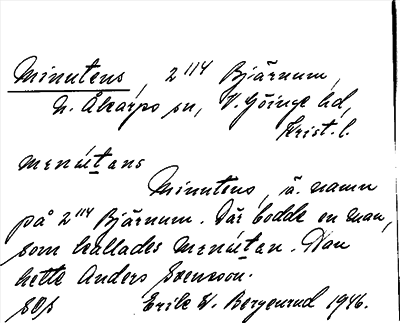 Minutens, 2 114 Bjärnum,
N. Åkarps sn, V. Göinge hd,
Krist. l.
menútans
Minutens, ä. namn
på 2 114 Bjärnum. Där bodde en man,
som kallades menútan. Han
hette Anders Svensson.
Erik W. Bergenrud 1946.